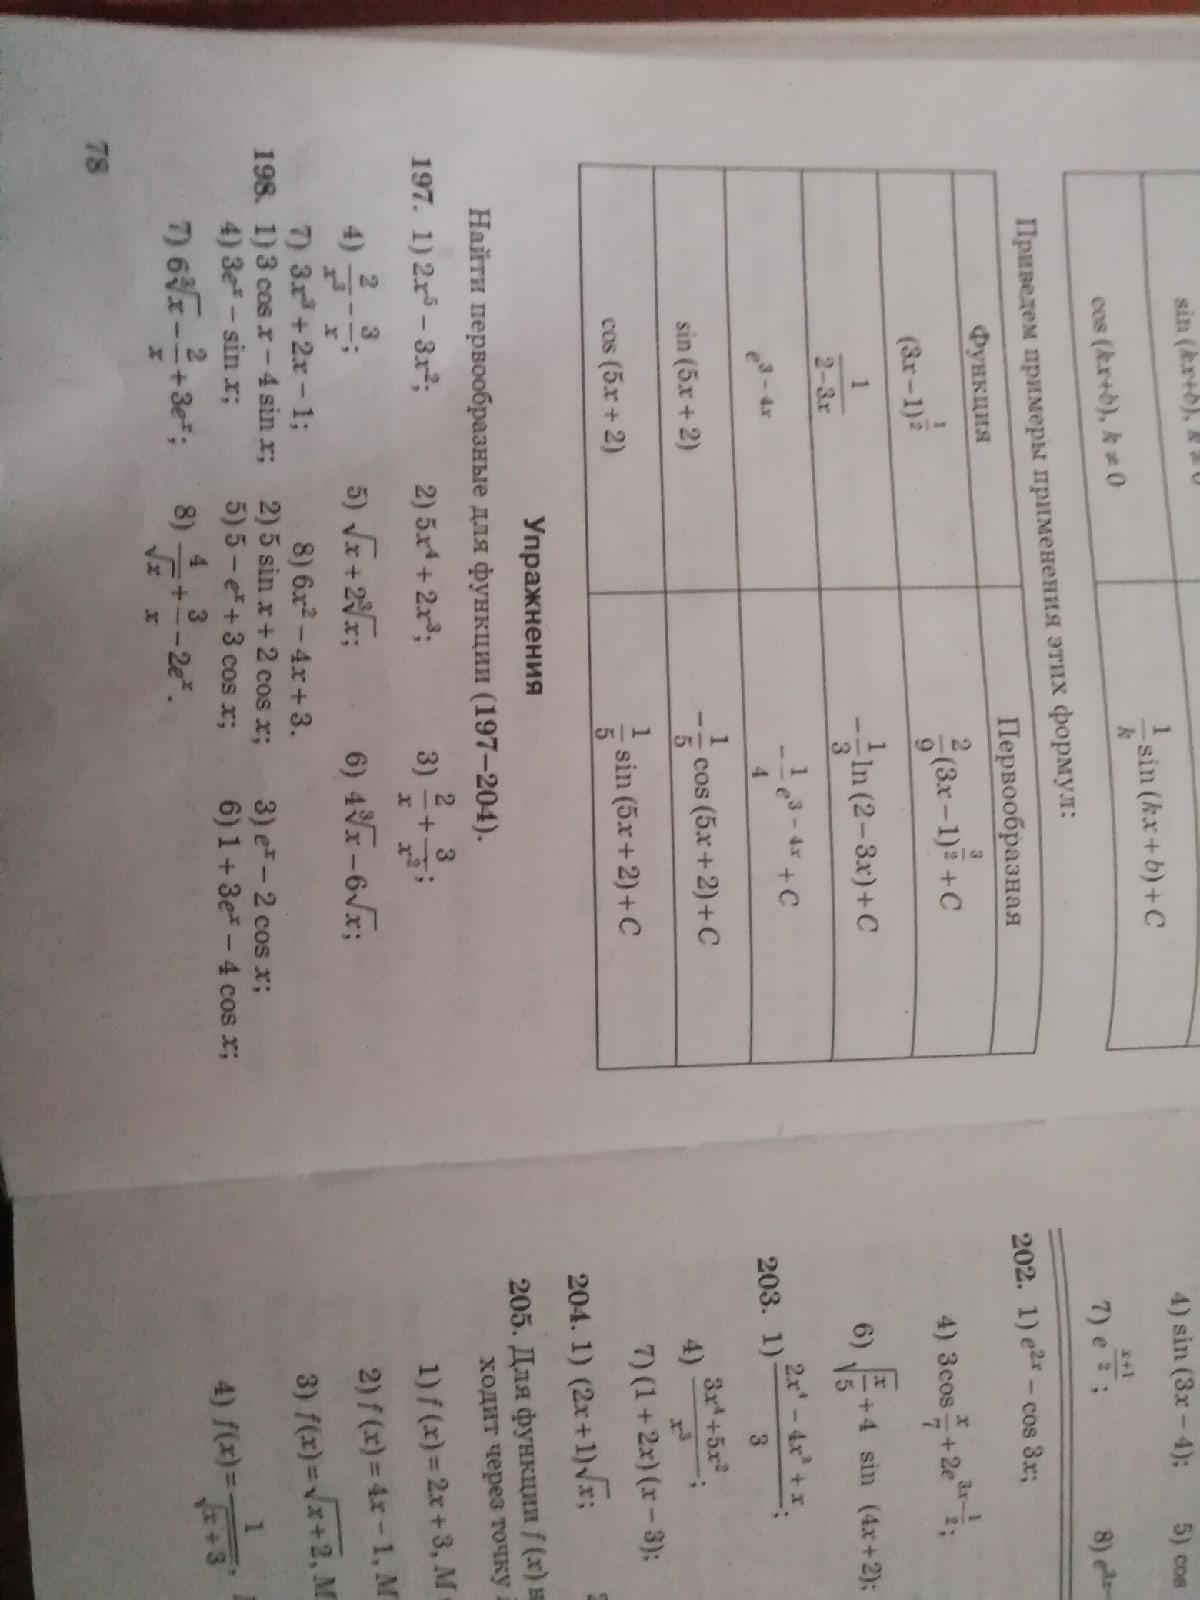 sin (kx+b), k ≠ 0
cos (kx+b), k ≠ 0 | 1/k sin (kx + b) + C
Приведем примеры применения этих формул:
Функция | Первообразная
(3x − 1)^(1/2) | 2/9 (3x − 1)^(3/2) + C
1/(2−3x) | −1/3 ln (2 − 3x) + C
e^(3 − 4x) | −1/4 e^(3 − 4x) + C
sin (5x + 2) | −1/5 cos (5x + 2) + C
cos (5x + 2) | 1/5 sin (5x + 2) + C
Упражнения
Найти первообразные для функции (197–204).
197. 1) 2x⁵ − 3x²; 2) 5x⁴ + 2x³; 3) 2/x + 3/x²;
4) 2/x³ − 3/x; 5) √x + 2∛x; 6) 4∛x − 6√x;
7) 3x³ + 2x − 1; 8) 6x² − 4x + 3.
198. 1) 3 cos x − 4 sin x; 2) 5 sin x + 2 cos x; 3) eˣ − 2 cos x;
4) 3eˣ − sin x; 5) 5 − eˣ + 3 cos x; 6) 1 + 3eˣ − 4 cos x;
7) 6∛x − 2/x + 3eˣ; 8) 4/√x + 3/x − 2eˣ.
78
4) sin (3x − 4); 5) cos
7) e^((x+1)/2); 8)
202. 1) e²ˣ − cos 3x;
4) 3cos x/7 + 2e^(3x − 1/2);
6) √(x/5) + 4 sin (4x + 2);
203. 1) (2x⁴ − 4x³ + x)/3;
4) (3x⁴ + 5x²)/x³;
7) (1 + 2x) (x − 3);
204. 1) (2x + 1)√x; 2
205. Для функции f (x)
ходит через точку
1) f (x) = 2x + 3, M
2) f (x) = 4x − 1, M
3) f (x) = √(x + 2), M
4) f (x) = 1/√(x + 3),